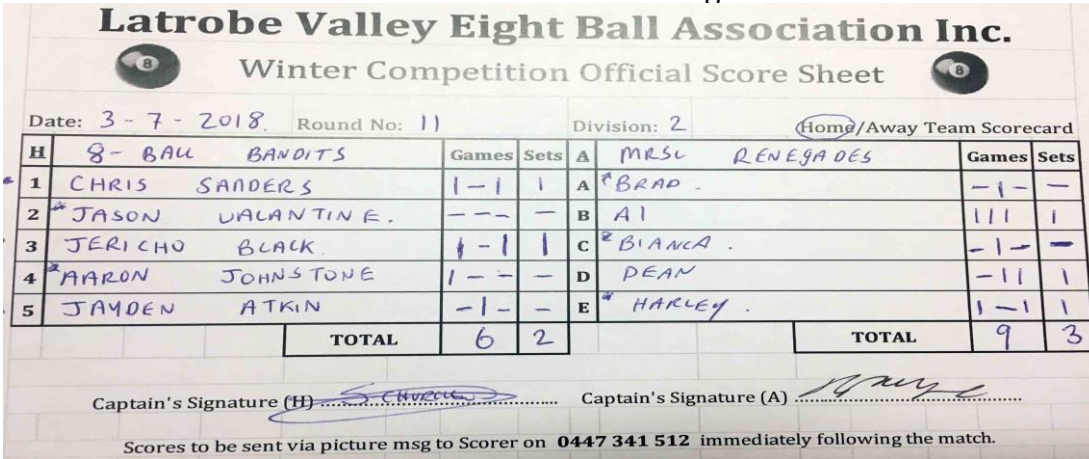 Latrobe Valley Eight Ball Association Inc.
8 Winter Competition Official Score Sheet 8
Date: 3 - 7 - 2018. Round No: 11 Division: 2 Home/Away Team Scorecard
H 8- BALL BANDITS Games Sets A MRSL RENEGADES Games Sets
1 CHRIS SANDERS 1 - 1 1 A BRAD . - 1 - -
2 JASON VALANTINE. - - - - B Al 1 1 1 1
3 JERICHO BLACK. 1 - 1 1 C BIANCA . - 1 - -
4 AARON JOHNSTONE 1 - - - D DEAN - 1 1 1
5 JAYDEN ATKIN - 1 - - E HARLEY. 1 - 1 1
TOTAL 6 2 TOTAL 9 3
Captain's Signature (H) Captain's Signature (A)
Scores to be sent via picture msg to Scorer on 0447 341 512 immediately following the match.